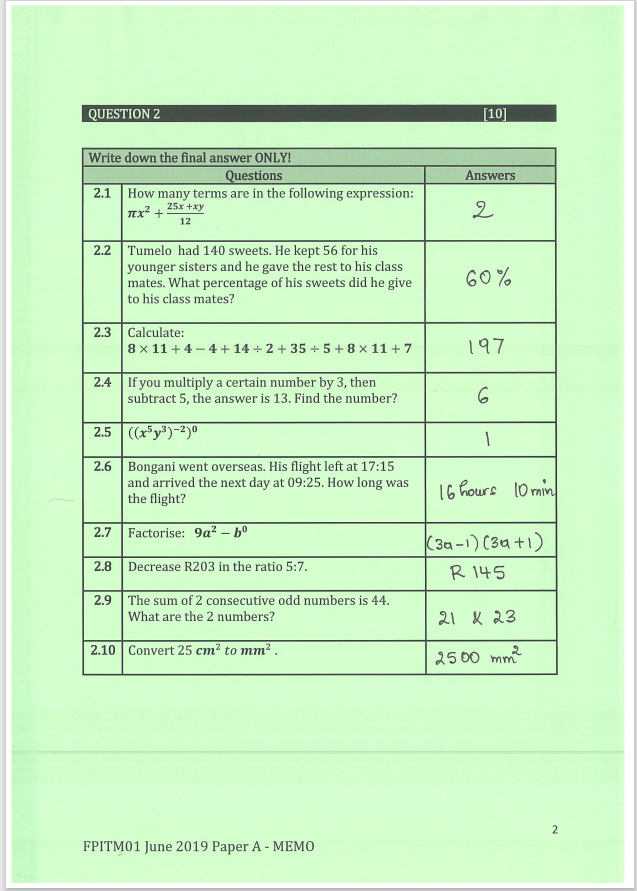 QUESTION 2 [10]
Write down the final answer ONLY!
Questions Answers
2.1 How many terms are in the following expression:
πx² + (25x + xy)/12
2
2.2 Tumelo had 140 sweets. He kept 56 for his
younger sisters and he gave the rest to his class
mates. What percentage of his sweets did he give
to his class mates?
60%
2.3 Calculate:
8 × 11 + 4 − 4 + 14 ÷ 2 + 35 ÷ 5 + 8 × 11 + 7
197
2.4 If you multiply a certain number by 3, then
subtract 5, the answer is 13. Find the number?
6
2.5 ((x⁵y³)⁻²)⁰
1
2.6 Bongani went overseas. His flight left at 17:15
and arrived the next day at 09:25. How long was
the flight?
16 hours 10 min
2.7 Factorise: 9a² − b⁰
(3a-1)(3a+1)
2.8 Decrease R203 in the ratio 5:7.
R 145
2.9 The sum of 2 consecutive odd numbers is 44.
What are the 2 numbers?
21 & 23
2.10 Convert 25 cm² to mm² .
2500 mm²
2
FPITM01 June 2019 Paper A - MEMO